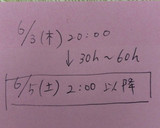 6/3(木) 20:00
↓ 30h～60h
6/5(土) 2:00 以降